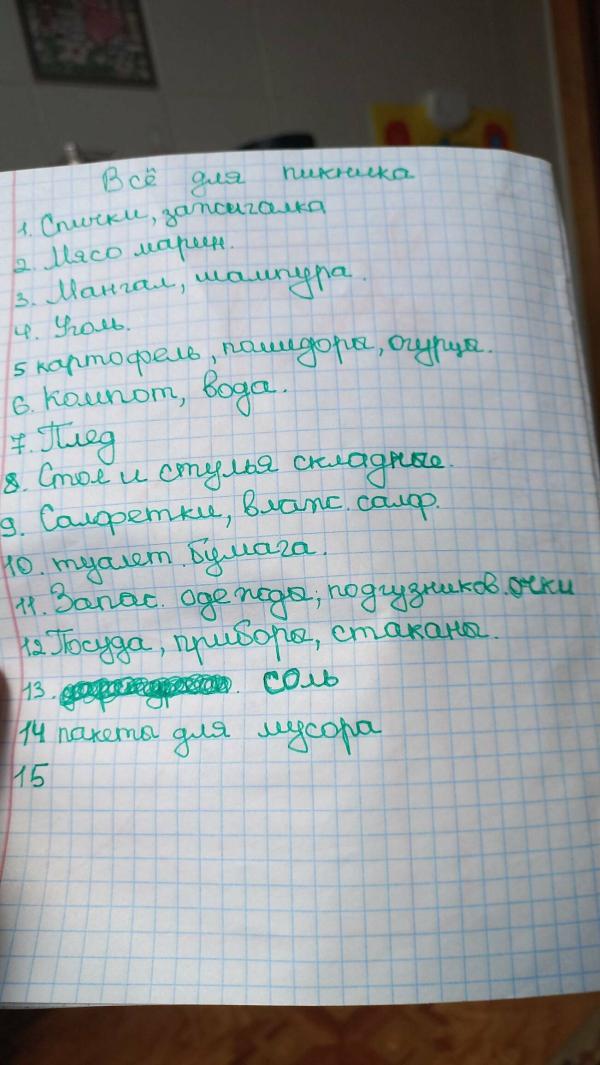 Всё для пикника
1. Спички, зажигалка
2. Мясо марин.
3. Мангал, шампура.
4. Уголь.
5 картофель, помидоры, огурцы.
6. Компот, вода.
7. Плед
8. Стол и стулья складные.
9. Салфетки, влаж. салф.
10. туалет. бумага.
11. Запас. одежды, подгузников. очки
12 Посуда, приборы, стаканы.
13. соль
14 пакеты для мусора
15